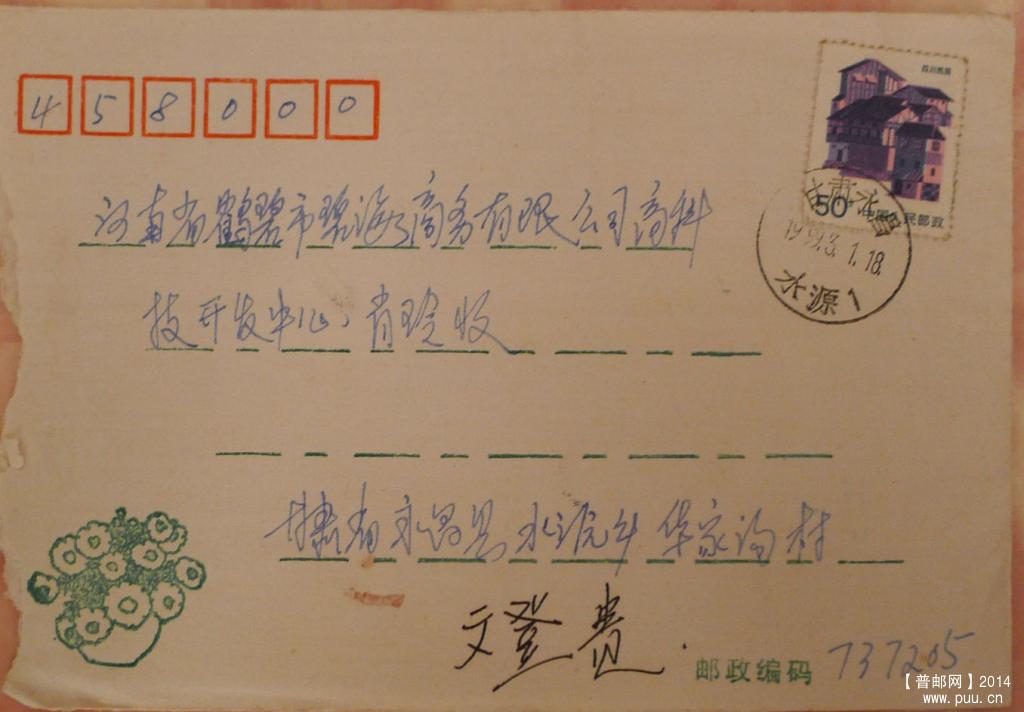 458000
四川民居
50 中国人民邮政
甘肃永昌
1999.3.1.18
水源1
河南省鹤壁市碧海商务有限公司商科
技开发中心 肖玲收
甘肃省永昌县水源乡华家沟村
文登贵
邮政编码 737205
【普邮网】2014
www.puu.cn